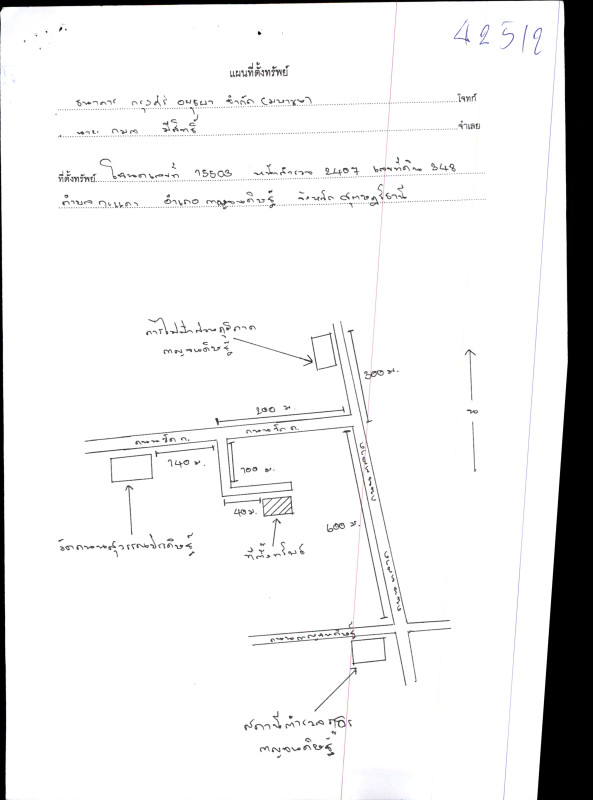 42512
แผนที่ตั้งทรัพย์
ธนาคาร กรุงศรี อยุธยา จำกัด (มหาชน) โจทก์
นาย กมล มีสิทธิ์ จำเลย
ที่ตั้งทรัพย์ โฉนดเลขที่ 15503 หน้าสำรวจ 2407 เลขที่ดิน 348
ตำบล กะแดะ อำเภอ กาญจนดิษฐ์ จังหวัด สุราษฎร์ธานี
การไฟฟ้าส่วนภูมิภาค
กาญจนดิษฐ์
300 ม.
น
200 ม.
ถนนรัต ถ.
ถนนรัต ถ.
140 ม.
100 ม.
40 ม.
600 ม.
ที่ตั้งทรัพย์
ถนนกาญจนดิษฐ์
สถานีตำรวจภูธร
กาญจนดิษฐ์